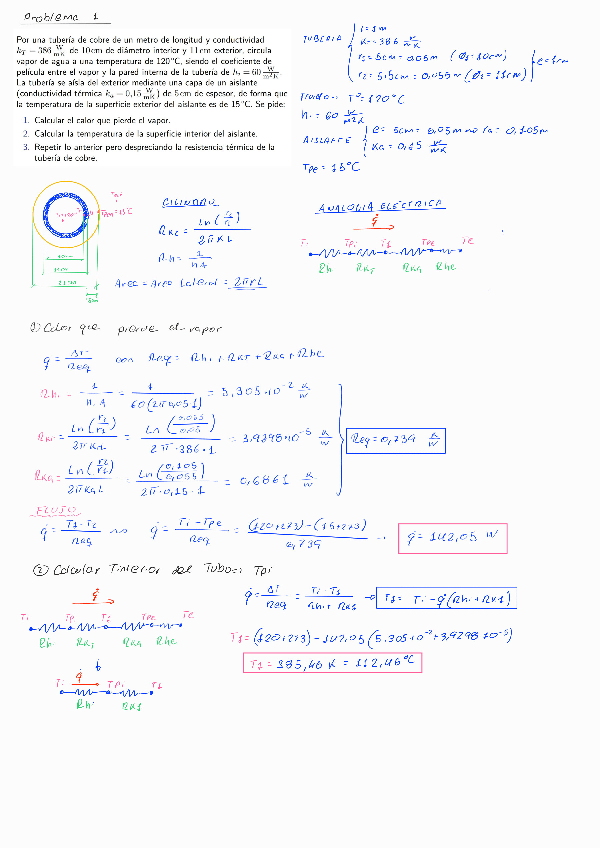 Problema 1
Por una tubería de cobre de un metro de longitud y conductividad
k_T = 386 W/mK de 10 cm de diámetro interior y 11 cm exterior, circula
vapor de agua a una temperatura de 120°C, siendo el coeficiente de
película entre el vapor y la pared interna de la tubería de h_i = 60 W/m²K.
La tubería se aísla del exterior mediante una capa de un aislante
(conductividad térmica k_a = 0,15 W/mK) de 5 cm de espesor, de forma que
la temperatura de la superficie exterior del aislante es de 15°C. Se pide:
1. Calcular el calor que pierde el vapor.
2. Calcular la temperatura de la superficie interior del aislante.
3. Repetir lo anterior pero despreciando la resistencia térmica de la
tubería de cobre.
TUBERIA
L = 1m
K = 386 W/mK
r1 = 5cm = 0,05m (Ø1 = 10cm)
r2 = 5,5cm = 0,055m (Ø2 = 11cm)
e = 1cm
T = 120°C
hi = 60 W/m²K
AISLANTE
e = 5cm = 0,05m → ra = 0,105m
Ka = 0,15 W/mK
Tpe = 15°C
CILINDRO
RKL = Ln(r2/r1) / 2πKL
Rh = 1 / hA
Area = Area Lateral = 2πrL
ANALOGIA ELECTRICA
q̇
Ti Tpi T1 Tpe Te
Rhi RKT RKa Rhe
1) Calor que pierde el vapor
q̇ = ΔT / Req con Req = Rhi + RKT + RKa + Rhe
Rhi = 1 / h·A = 1 / 60(2π0,05·1) = 5,305·10⁻² K/W
RKT = Ln(r2/r1) / 2πKL = Ln(0,055/0,05) / 2π·386·1 = 3,9298·10⁻⁵ K/W
Req = 0,739 K/W
RKa = Ln / 2πKaL = Ln(0,105/0,055) / 2π·0,15·1 = 0,6861 K/W
FLUJO
q̇ = Ti - Te / Req → q̇ = Ti - Tpe / Req = (120+273) - (15+273) / 0,739
q̇ = 142,05 W
(2) Calcular T interior del Tubo: Tpi
q̇
q̇ = ΔT / Req = Ti - T1 / Rhi + RKT → T1 = Ti - q̇(Rhi + RKT)
Ti Tpi T1 Tpe Te
Rhi RKT RKa Rhe
T1 = (120+273) - 142,05(5,305·10⁻² + 3,9298·10⁻⁵)
T1 = 385,46 K = 112,46°C
q̇
Ti Tpi T1
Rhi RKT